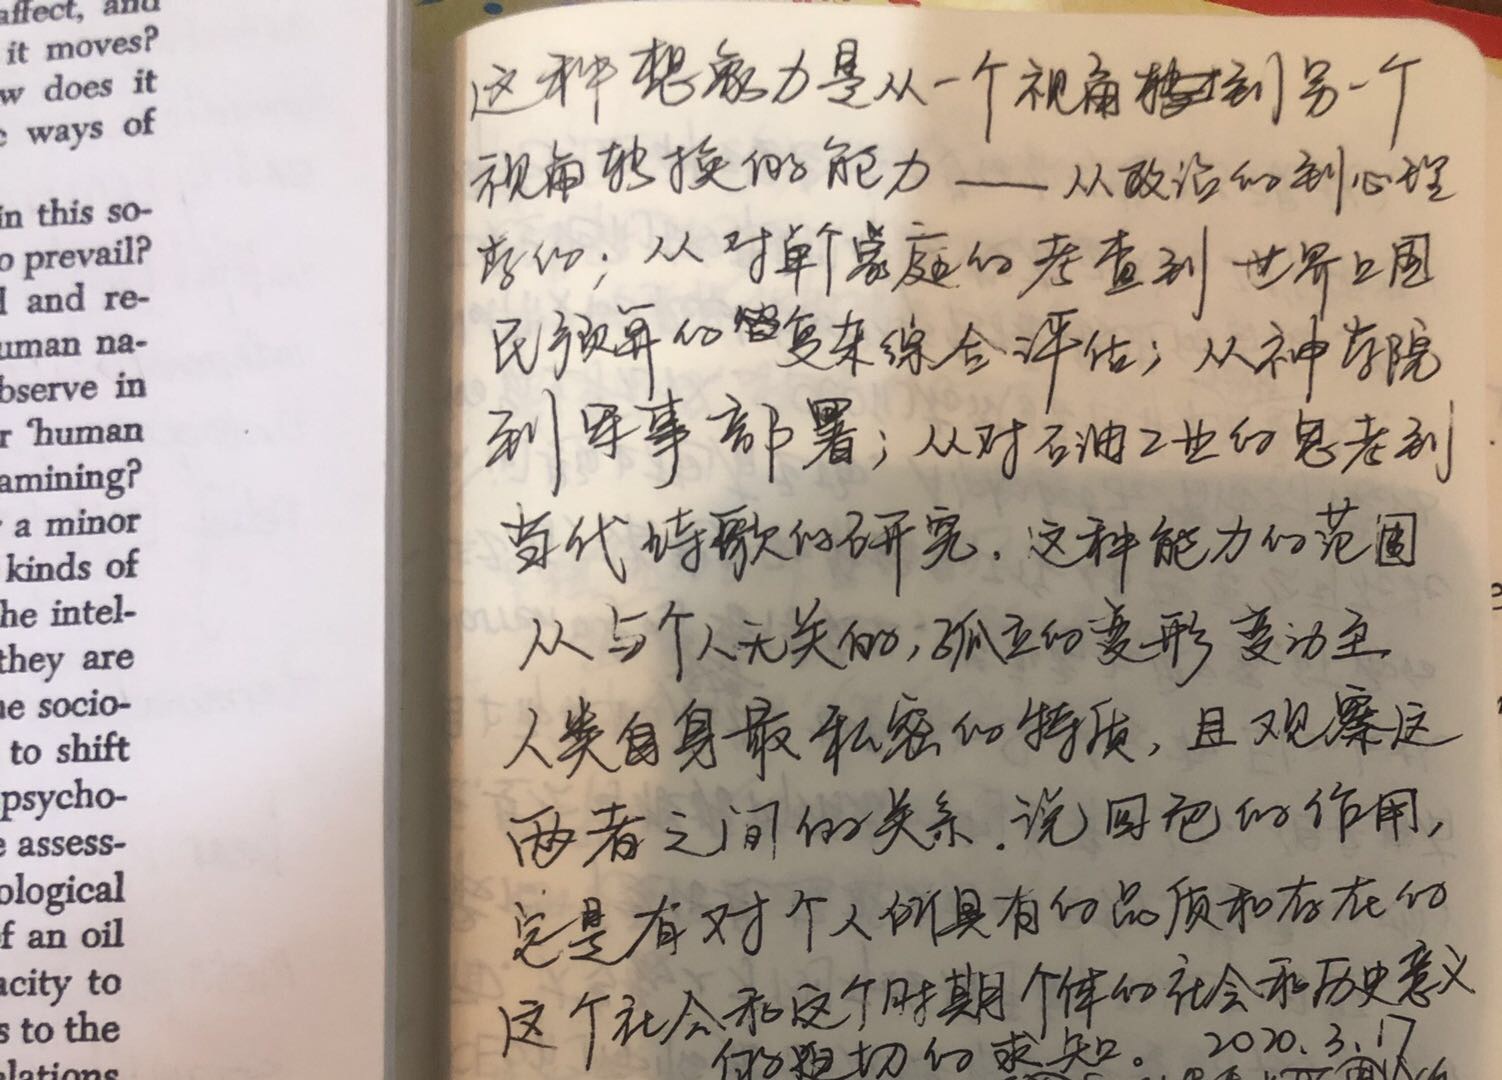 affect, and
it moves?
w does it
ways of
in this so-
o prevail?
and re-
uman na-
bserve in
r 'human
amining?
a minor
kinds of
he intel-
they are
ne socio-
to shift
psycho-
e assess-
ological
f an oil
acity to
s to the
elations
这种想象力是从一个视角转换到另一个
视角转换的能力——从政治的到心理
学的；从对单个家庭的考查到世界上国
民预算的复杂综合评估；从神学院
到军事部署；从对石油工业的思考到
当代诗歌的研究．这种能力的范围
从与个人无关的，孤立的变形变动至
人类自身最私密的特质，且观察这
两者之间的关系．说回它的作用，
它是有对个人所具有的品质和存在的
这个社会和这个时期个体的社会和历史意义
的迫切的求知。 2020.3.17